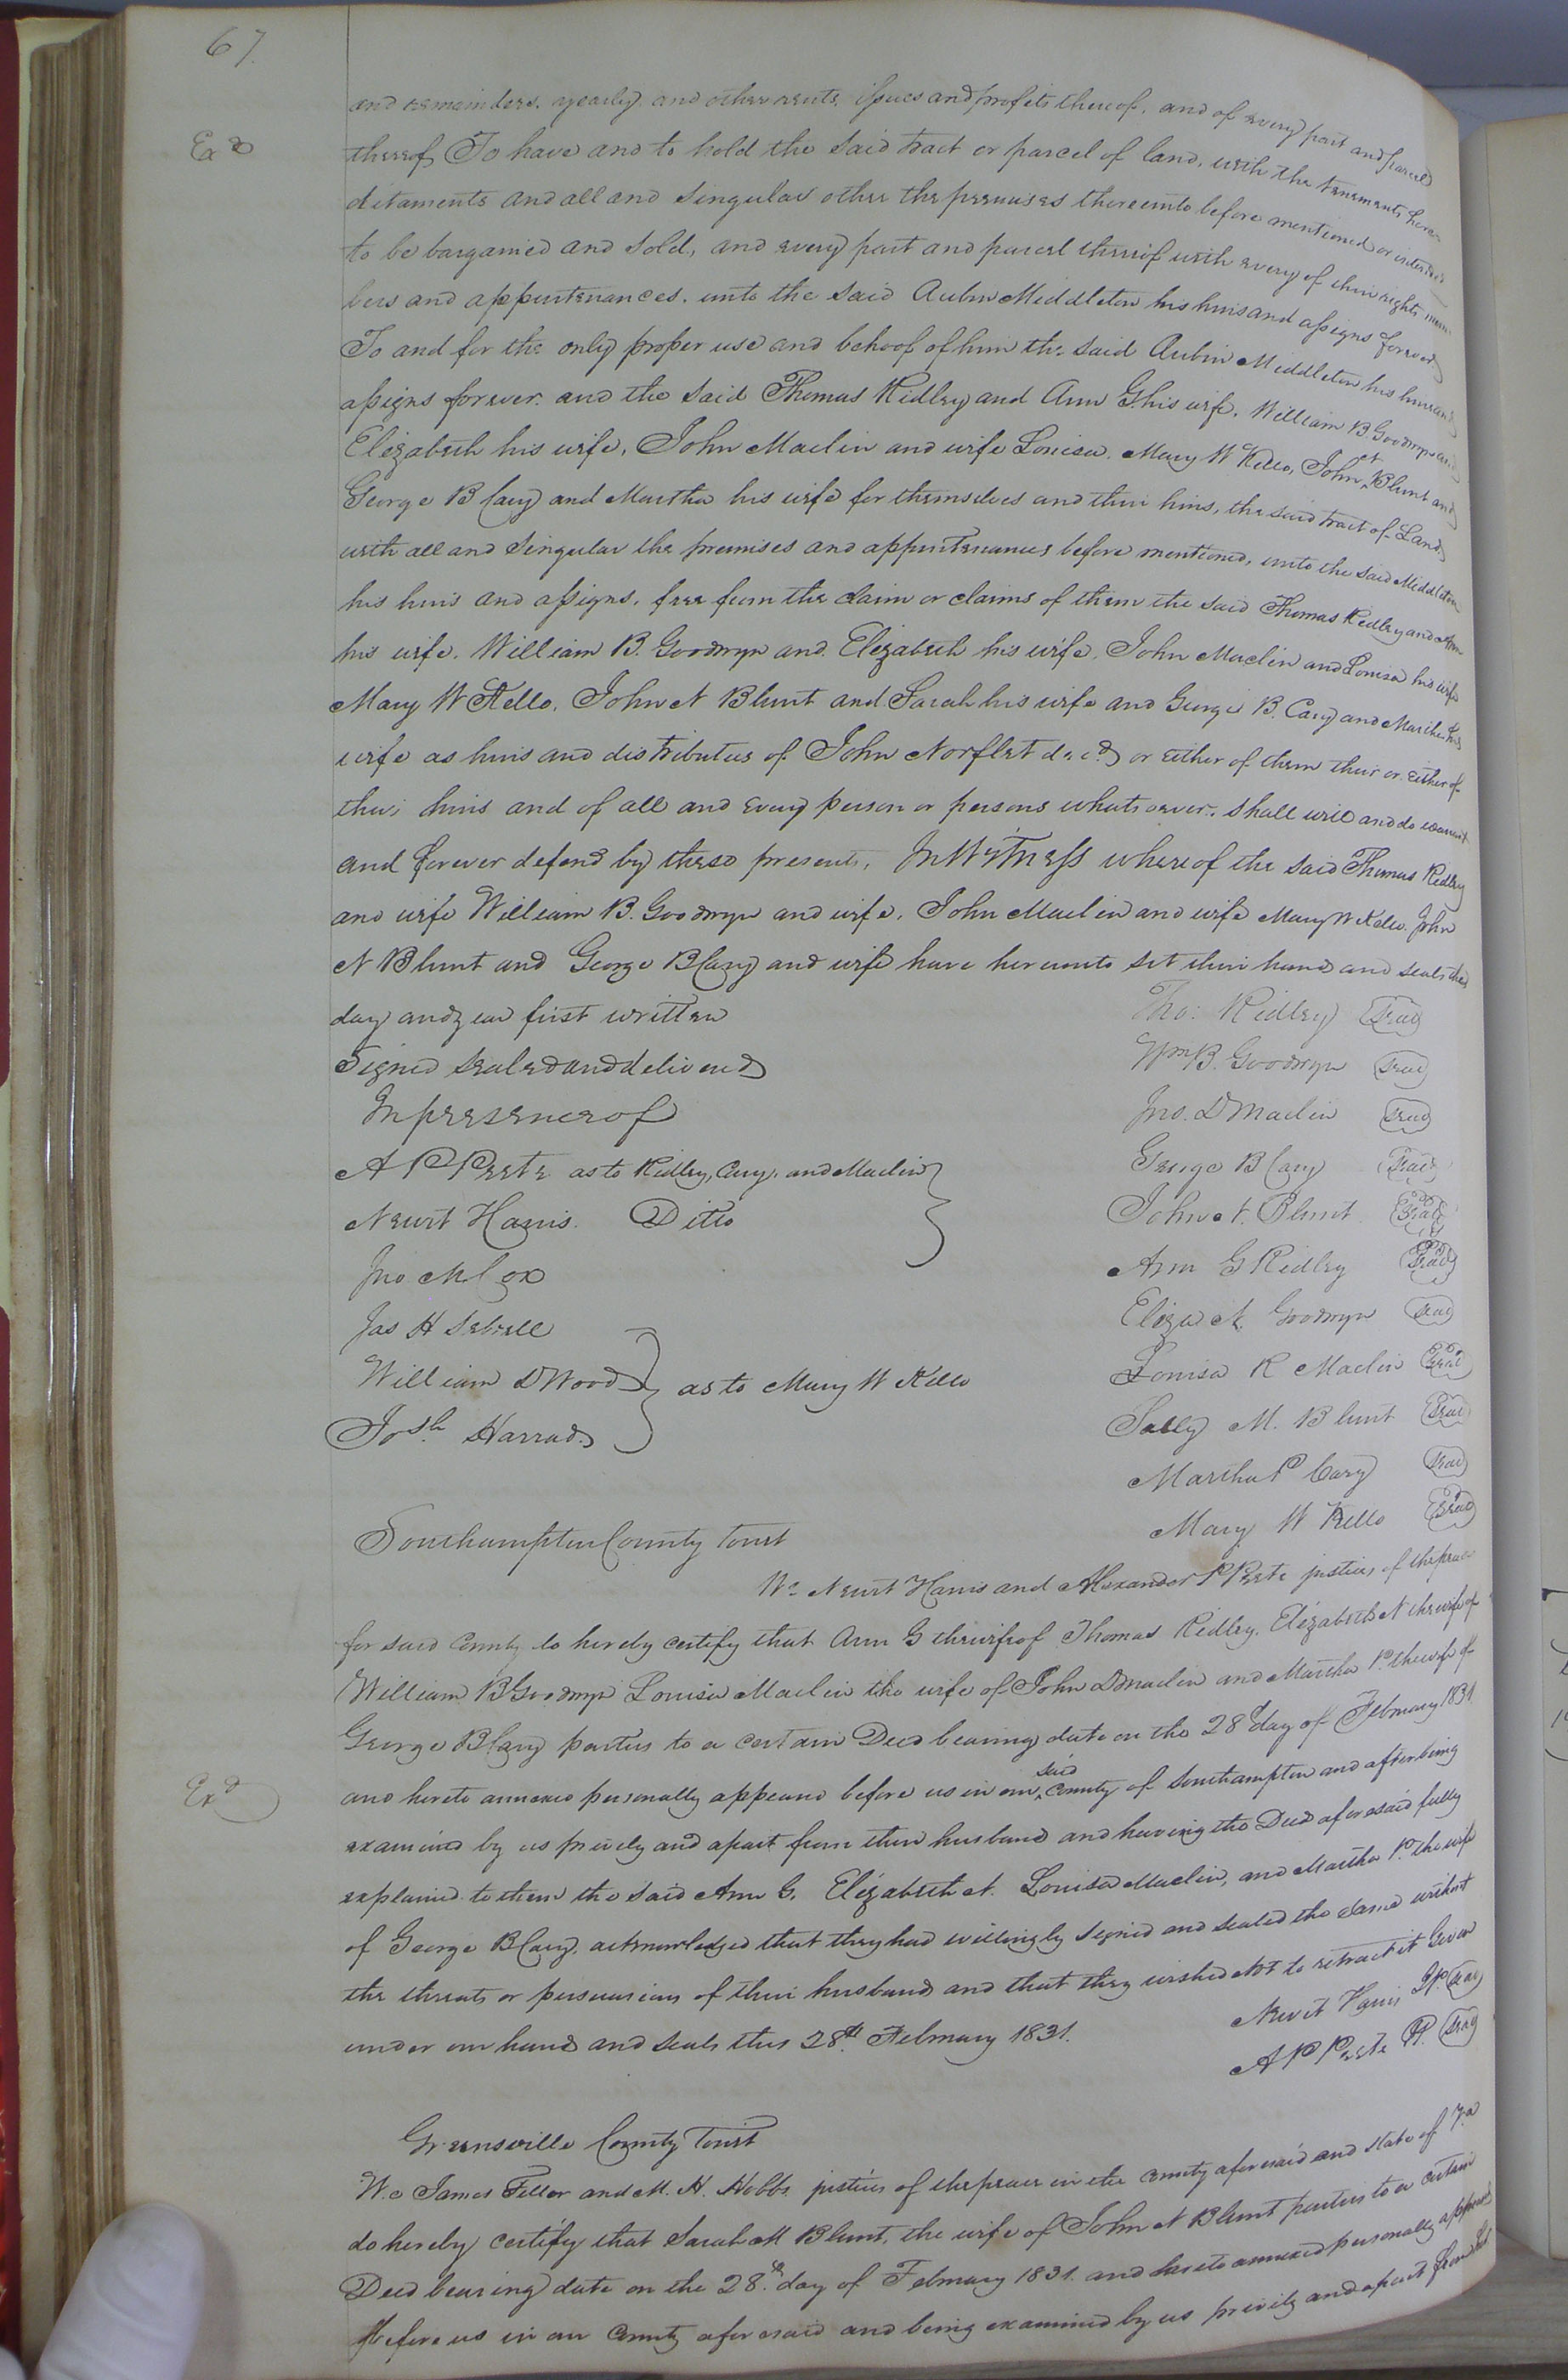 67.
and remainders. yearly and other rents issues and profits thereof. and of every part and parcel
Exd
thereof To have and to hold the said tract or parcel of land, with the tenements, here-
ditaments and all and singular other the premises thereunto before mentioned or intended
to be bargained and sold, and every part and parcel thereof with every of their rights mem
bers and appurtenances. unto the said Aubin Middleton his heirs and assigns forever
To and for the only proper use and behoof of him the said Aubin Middleton his heirs and
assigns forever. and the said Thomas Ridley and Ann G. his wife. William B. Goodwyn and
Elizabeth his wife, John Maclin and wife Louisa. Mary W Kello, John N Blunt and
George B Cary and Martha his wife for themselves and their heirs, the said tract of Land
with all and singular the premises and appurtenances before mentioned, unto the said Middleton
his heirs and assigns. free from the claim or claims of them the said Thomas Ridley and Ann
his wife. William B. Goodwyn and Elizabeth his wife. John Maclin and Louisa his wife
Mary W Kello. John N Blunt and Sarah his wife and George B. Cary and Martha his
wife as heirs and distributees of John Norflet decd or either of them their or either of
their heirs and of all and every person or persons whatsoever. shall will and do warrant
and forever defend by these presents, In Witness whereof the said Thomas Ridley
and wife William B. Goodwyn and wife. John Maclin and wife Mary W Kello. John
N Blunt and George B Cary and wife have hereunto set their hand and seals the
day and year first written
Tho: Ridley Seal
Signed sealed and delivered
Wm B. Goodwyn Seal
In presence of
Jno. D Maclin Seal
A P Peete as to Ridley, Cary, and Maclin
George B Cary Seal
Newit Harris. Ditto
John N. Blunt Seal
Jno M Cox
Ann G Ridley Seal
Jas H Sebrell
Eliza N. Goodwyn Seal
William D Wood as to Mary W Kello
Louisa R Maclin Seal
Josh Harrad
Sally M. Blunt Seal
Martha P Cary Seal
Mary W Kello Seal
Southampton County Towit
We Newit Harris and Alexander P Peete justices of the peace
for said County do hereby certify that Ann G the wife of Thomas Ridley. Elizabeth N the wife of
William B Goodwyn Louisa Maclin the wife of John D Maclin and Martha P. the wife of
George B Cary parties to a certain Deed bearing date on the 28th day of February 1831.
Exd
and hereto annexed personally appeared before us in our said County of Southampton and after being
examined by us privily and apart from their husband and having the Deed aforesaid fully
explained to them the said Ann G. Elizabeth N. Louisa Maclin, and Martha P. the wife
of George B Cary, acknowledged that they had willingly signed and sealed the same without
the threats or persuasions of their husband and that they wished not to retract it Given
under our hand and seals this 28th February 1831.
Newit Harris JP. Seal
A P Peete JP. Seal
Greensville County Towit
We James Feller and M. H. Hobbs justices of the peace in the County aforesaid and state of Va
do hereby certify that Sarah M Blunt, the wife of John N Blunt parties to a certain
Deed bearing date on the 28th day of February 1831. and hereto annexed personally appeared
before us in our County aforesaid and being examined by us privily and apart from her